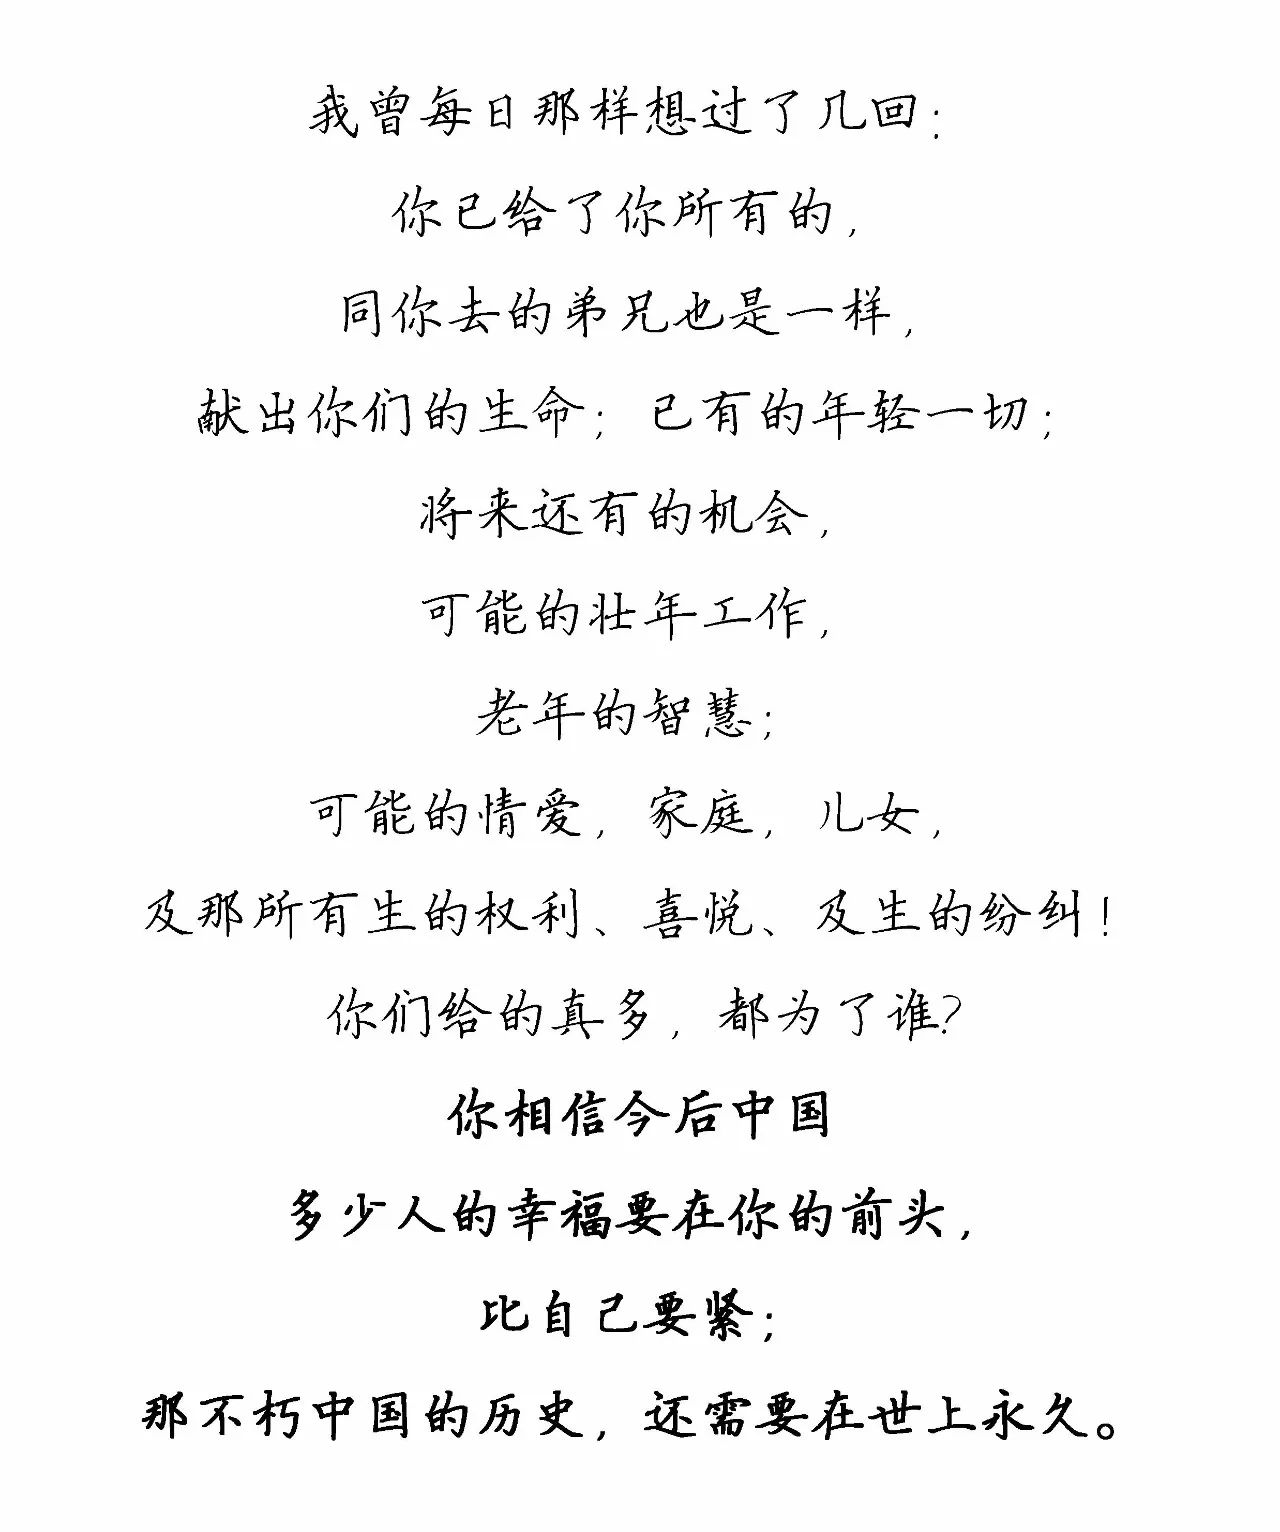 我曾每日那样想过了几回：
你已给了你所有的，
同你去的弟兄也是一样，
献出你们的生命；已有的年轻一切；
将来还有的机会，
可能的壮年工作，
老年的智慧；
可能的情爱，家庭，儿女，
及那所有生的权利、喜悦、及生的纷纠！
你们给的真多，都为了谁？
你相信今后中国
多少人的幸福要在你的前头，
比自己要紧；
那不朽中国的历史，还需要在世上永久。